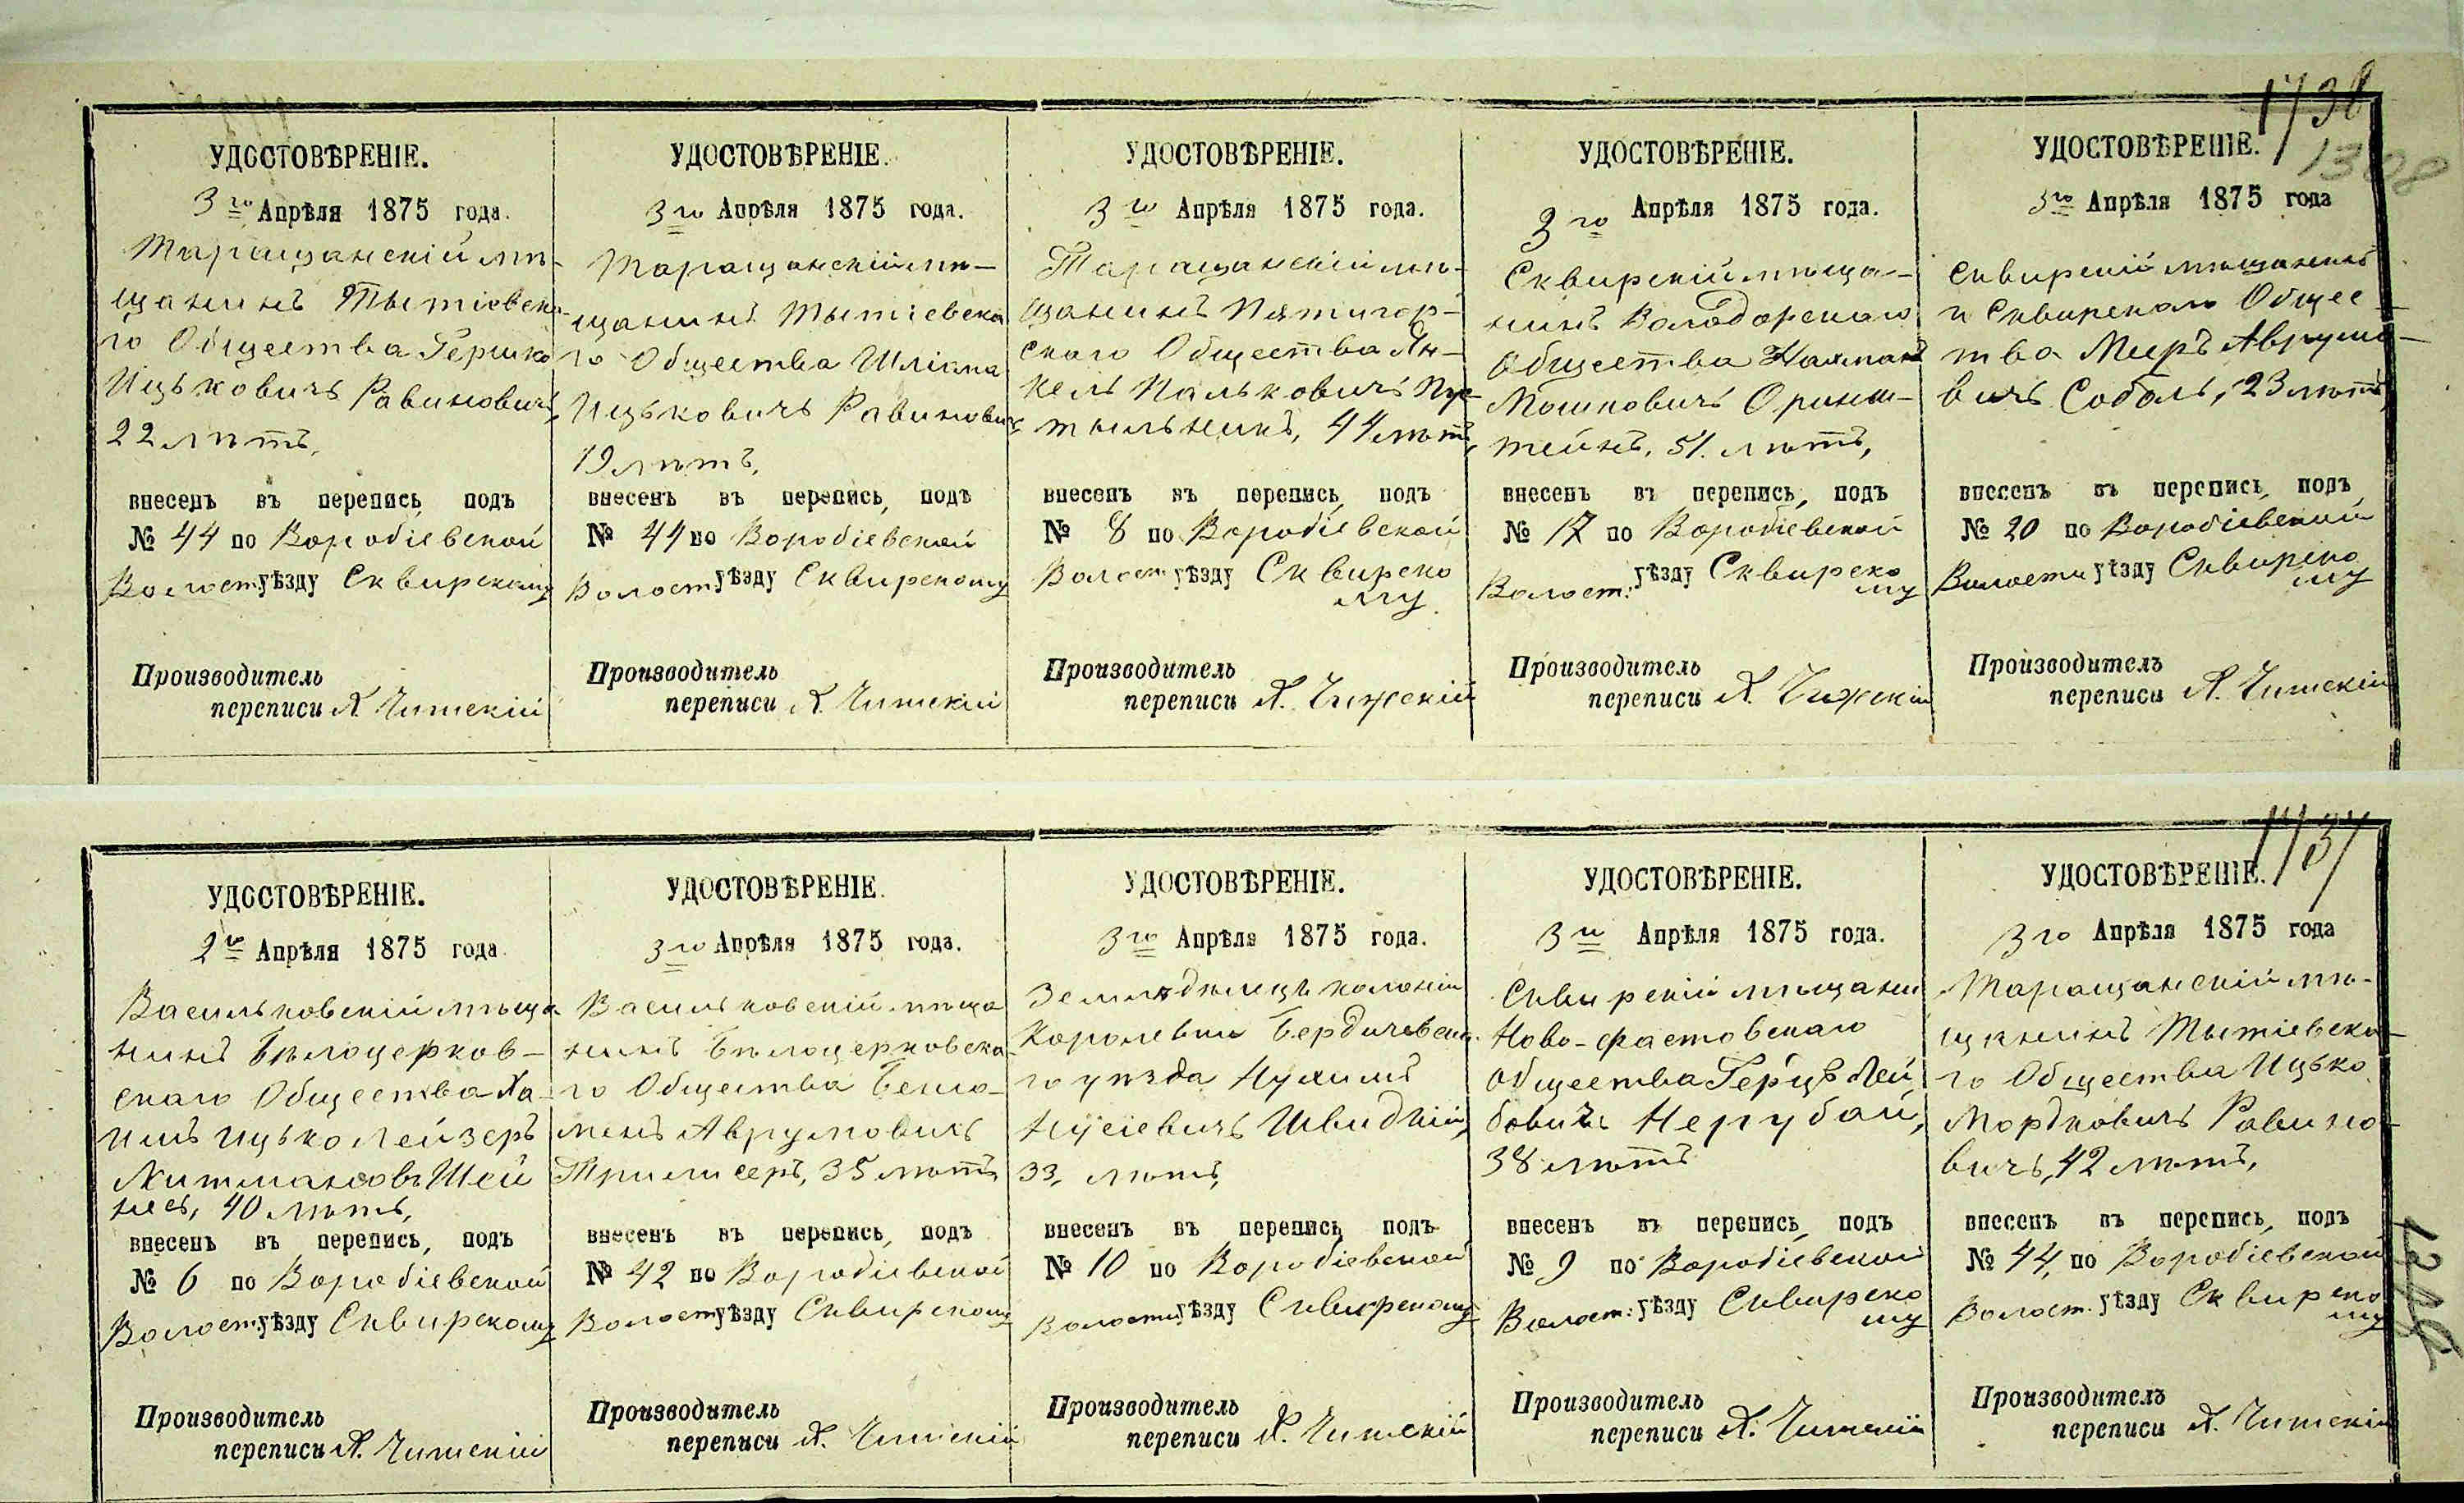 1738
1308
УДОСТОВѢРЕНІЕ.
3го Апрѣля 1875 года.
Таращанскій мѣ-
щанинъ Тытіевска-
го Общества Гершко
Ицьковичъ Равиновичъ,
22 лѣтъ,
внесенъ въ перепись подъ
№ 44 по Воробіевской
Волости уѣзду Сквирскому
Производитель
переписи А. Чижскій
УДОСТОВѢРЕНІЕ.
3го Апрѣля 1875 года.
Таращанскій мѣ-
щанинъ Тытіевска
го Общества Шліома
Ицьковичъ Равиновичъ
19 лѣтъ,
внесенъ въ перепись, подъ
№ 44 по Воробіевской
Волост уѣзду Сквирскому
Производитель
переписи А. Чижскій
УДОСТОВѢРЕНІЕ.
3го Апрѣля 1875 года.
Таращанскій мѣ-
щанинъ Пятигор-
скаго Общества Ян-
кель Пальковичъ Пус-
тыльникъ, 44 лѣтъ,
внесенъ въ перепись, подъ
№ 8 по Воробіевской
Волост. уѣзду Сквирско
му
Производитель
переписи А. Чижскій
УДОСТОВѢРЕНІЕ.
3го Апрѣля 1875 года.
Сквирскій мѣща-
нинъ Володарскаго
Общества Нахманъ
Мошковичъ Оринш-
тейнъ, 51. лѣтъ,
внесенъ въ перепись, подъ
№ 17 по Воробіевской
Волост: уѣзду Сквирско
му
Производитель
переписи А. Чижскій
УДОСТОВѢРЕНІЕ.
3го Апрѣля 1875 года
Сквирскій мѣщанинъ
и Сквирскаго Общес-
тва Меиръ Аврумо-
вичъ Соболь, 23 лѣтъ,
внесенъ въ перепись, подъ
№ 20 по Воробіевской
Волости уѣзду Сквирско
му
Производитель
переписи А. Чижскій
1737
УДОСТОВѢРЕНІЕ.
2го Апрѣля 1875 года.
Васильковскій мѣща-
нинъ Бѣлоцерков-
скаго Общества Ха-
имъ Ицько Лейзеръ
Шей
40 лѣтъ,
внесенъ въ перепись, подъ
№ 6 по Воробіевской
Волост уѣзду Сквирскому
Производитель
переписи А. Чижскій
УДОСТОВѢРЕНІЕ.
3го Апрѣля 1875 года.
Васильковскій мѣща
нинъ Бѣлоцерковска-
го Общества Беню-
менъ Аврумовичъ
Трилисеръ, 35 лѣтъ,
внесенъ въ перепись, подъ
№ 42 по Воробіевской
Волост уѣзду Сквирскому
Производитель
переписи А. Чижскій
УДОСТОВѢРЕНІЕ.
3го Апрѣля 1875 года.
Земледѣлецъ колоніи
Королевки Бердичевска-
го уѣзда Нухимъ
Нусіевичъ Швидкій,
33, лѣтъ,
внесенъ въ перепись подъ
№ 10 по Воробіевской
Волости уѣзду Сквирскому
Производитель
переписи А. Чижскій
УДОСТОВѢРЕНІЕ.
3го Апрѣля 1875 года.
Сквирскій мѣщанин
Ново-Фастовскаго
Общества Герцъ Лей
бовичъ Нерубай,
38 лѣтъ
внесенъ въ перепись, подъ
№ 9 по Воробіевской
Волост: уѣзду Сквирско
му
Производитель
переписи А. Чижскій
УДОСТОВѢРЕНІЕ.
3го Апрѣля 1875 года
Таращанскій мѣ-
щанинъ Тытіевска-
го Общества Ицько
Мордковичъ Равино-
вичъ, 42 лѣтъ,
внесенъ въ перепись, подъ
№ 44, по Воробіевской
Волост. уѣзду Сквирско
му
Производитель
переписи А. Чижскій